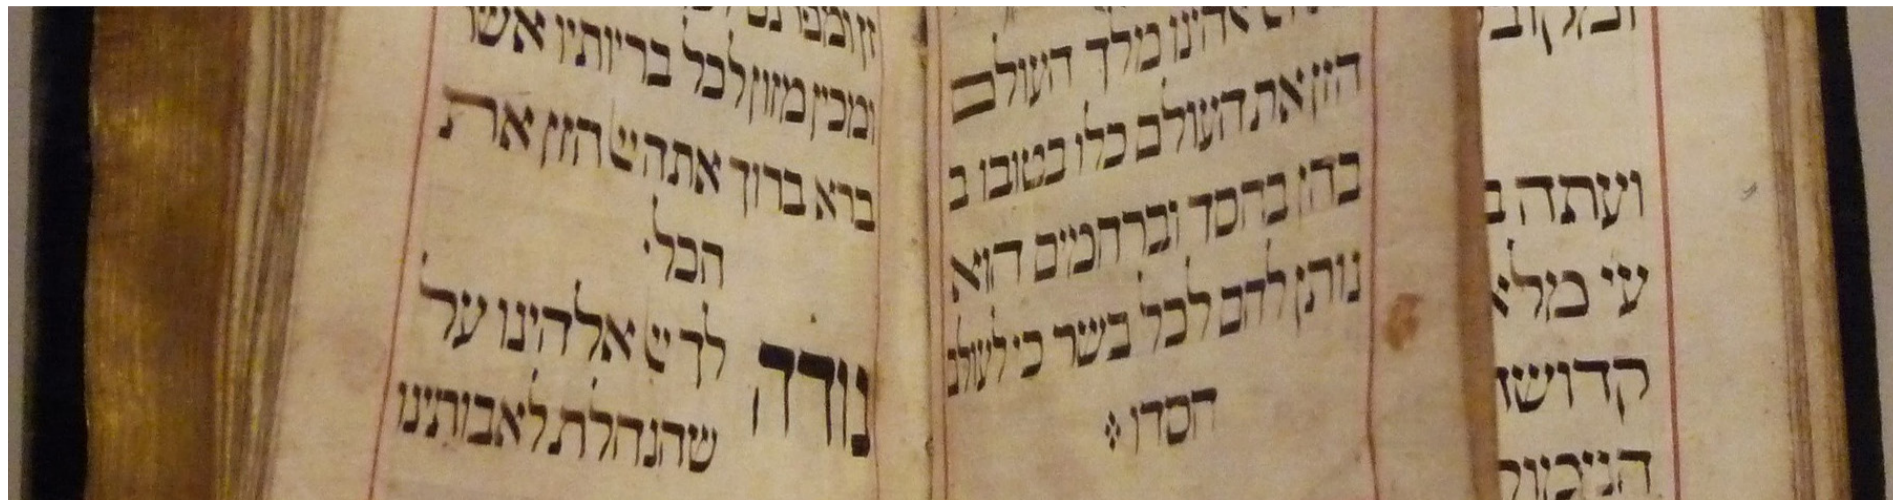 ועתה
עי
מלך העולם
הזן את העולם כלו בטובו ב
בהן בחסד וברחמים הוא
נותן לחם לכל בשר כי לעולם
חסדו
זן ומפרנס
ומכין מזון לכל בריותיו אשר
ברא ברוך אתה ייי הזן את
הכל׃
נודה לך ייי אלהינו על
שהנחלת לאבותינו